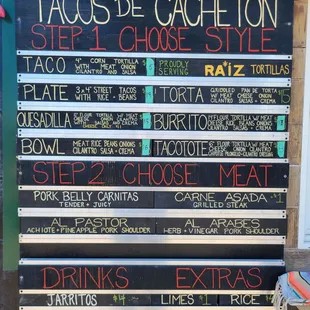 TACOS DE CACHETON
STEP 1 CHOOSE STYLE
TACO 4" CORN TORTILLA WITH MEAT ONION CILANTRO AND SALSA
PROUDLY SERVING RAIZ TORTILLAS
PLATE 3 x 4" STREET TACOS WITH RICE + BEANS
TORTA GRIDDLED PAN DE TORTA W/ MEAT CHEESE ONION CILANTRO SALSA + CREMA
QUESADILLA FLOUR TORTILLA W/
BURRITO FLOUR TORTILLA W/ MEAT CHEESE ONION CILANTRO SALSA + CREMA
BOWL MEAT RICE BEANS ONIONS CILANTRO SALSA + CREMA
TACOTOTE FLOUR TORTILLA W/ MEAT CHEESE ONION CILANTRO
STEP 2 CHOOSE MEAT
PORK BELLY CARNITAS
TENDER + JUICY
CARNE ASADA
GRILLED STEAK
AL PASTOR
ACHIOTE + PINEAPPLE PORK SHOULDER
AL ARABES
HERB + VINEGAR PORK SHOULDER
DRINKS EXTRAS
JARRITOS $4 LIMES $1 RICE